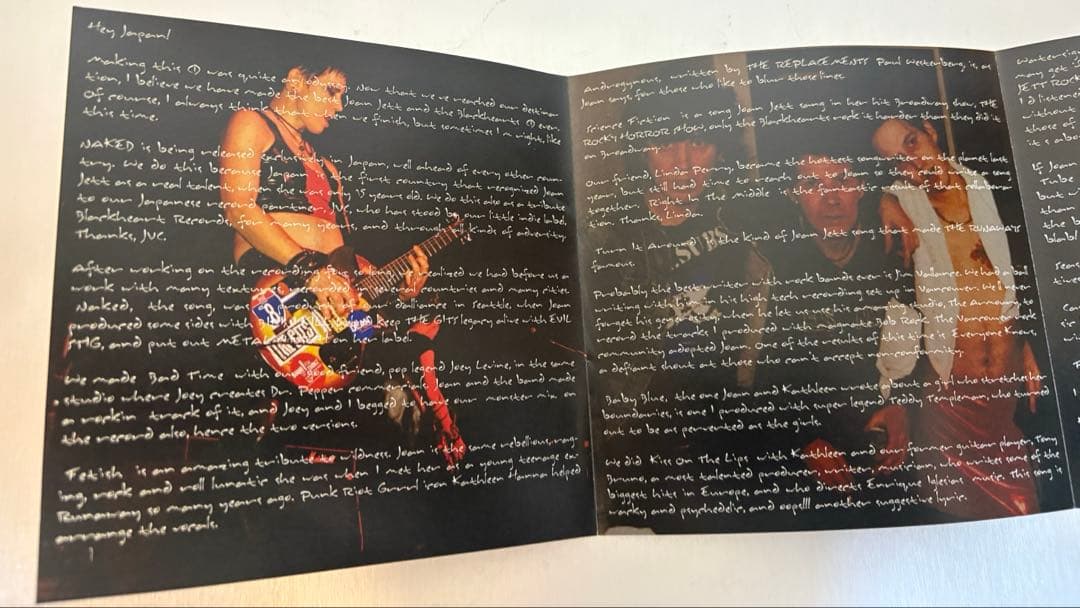 Hey Japan!
Making this was quite an odyssey. Now that we've reached our destina
tion, I believe we have made the best Joan Jett and the Blackhearts ever.
Of course, I always think that when we finish, but sometimes I'm right, like
this time.
NAKED is being released exclusively in Japan, well ahead of every other coun
try. We do this because Japan the first country that recognized Joan
Jett as a real talent, when she was only 15 years old. We do this also as a tribute
to our Japanese record partner, JVC, who has stood by our little indie label,
Blackheart Records, for many, years, and through all kinds of adversity.
Thanks, JVC.
After working on the recording for so long, we realized we had before us a
work with many textures, recorded in several countries and many cities.
Naked, the song, was produced in Seattle, when Joan
produced some sides with keep THE GITS legacy alive with EVIL
STIG, and put out on her label.
We made Bad Time with our good friend, pop legend Joey Levine, in the same
studio where Joey creates Dr. Pepper commercials. Joan and the band made
a rockin track of it, and Joey and I begged to have our monster mix on
the record also, hence the two versions.
Fetish is an amazing tribute to oldness. Joan is the same rebellious, rag-
ing, rock and roll lunatic she was when I met her as a young teenage ex-
Runaway so many years ago. Punk Riot Grrrrl icon Kathleen Hanna helped
arrange the vocals.
Androgynous, written by THE REPLACEMENTS Paul Westerberg, is, as
Joan says, for those who like to blur those lines.
Science Fiction is a song Joan Jett sang in her hit Broadway show, THE
ROCKY HORROR SHOW, only the Blackhearts rock it harder than they did it
on Broadway.
Our friend, Linda Perry, became the hottest songwriter on the planet last
year, but still had time to reach out to Joan so they could write a song
together. Right In The Middle is the fantastic result of that collabora-
tion. Thanks, Linda.
Turn It Around is the kind of Joan Jett song that made THE RUNAWAYS
famous.
Probably the best writer a rock band's ever is Jim Vallance. We had a ball
writing with him on his high tech recording set up in Vancouver. We'll never
forget his when he let us use his studio, The Armoury, to
record the tracks I produced with magnate Bob Rock. The Vancouver rock
community adopted Joan. One of the results of this time is Everyone Knows,
a defiant shout at those who can't accept non-conformity.
Baby Blue, the one Joan and Kathleen wrote about a girl who stretches her
boundaries, is one I produced with super legend Teddy Templeman, who turned
out to be as perverted as the girls.
We did Kiss On The Lips with Kathleen and our former guitar player, Tony
Bruno, a most talented producer, writer, musician, who writes some of the
biggest hits in Europe, and who directs Enrique Iglesias' music. This song is
wacky and psychedelic, and oops!!! another suggestive lyric.
many get
JETT ROCK
I'd listened
without
those of
it's a
If Joan
Tube
but
than
the
blah/